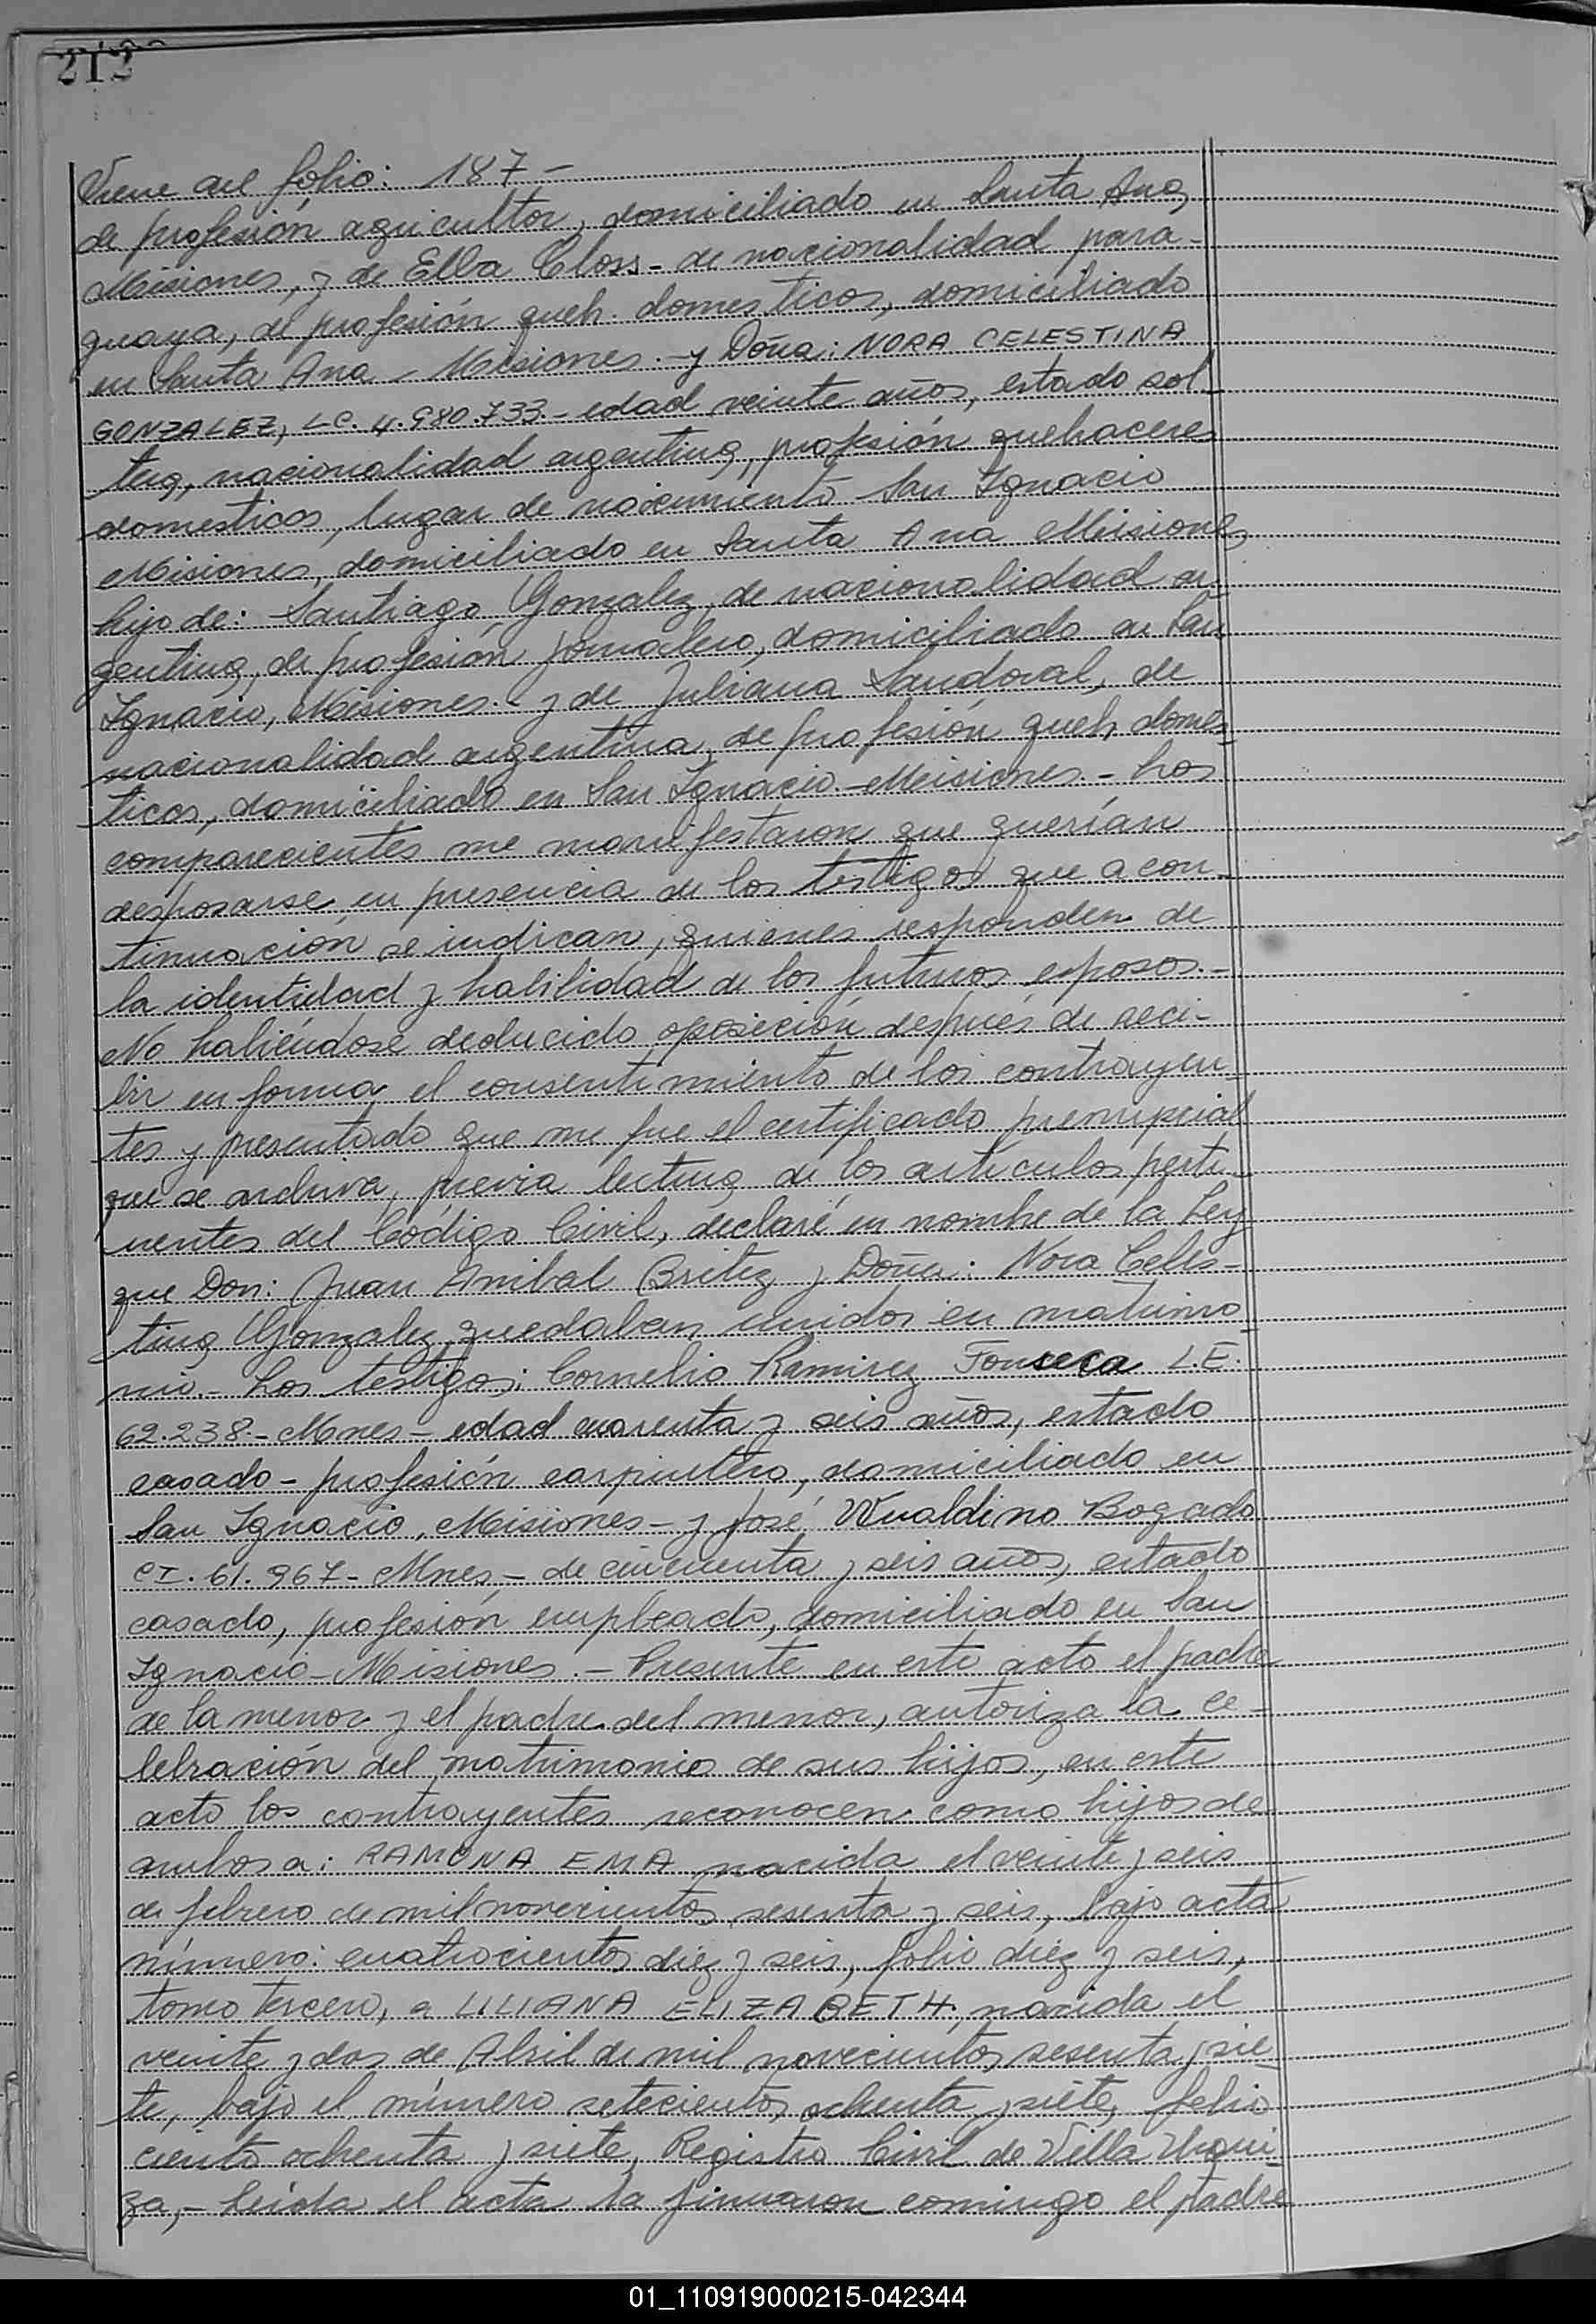 212
Viene del folio: 187 -
de profesión agricultor, domiciliado en Santa Ana,
Misiones, y de Elba Closs - de nacionalidad para-
guaya, de profesión queh. domesticos, domiciliado
en Santa Ana - Misiones. - y Doña: NORA CELESTINA
GONZALEZ, LC. 4.980.733.- edad veinte años, estado sol-
tera, nacionalidad argentina, profesión quehaceres
domesticos, lugar de nacimiento San Ignacio
Misiones, domiciliado en Santa Ana Misiones,
hijo de: Santiago Gonzalez, de nacionalidad ar-
gentina, de profesión jornalero, domiciliado en San
Ignacio, Misiones. - y de Juliana Sandoval, de
nacionalidad argentina, de profesión queh. domes-
ticos, domiciliado en San Ignacio - Misiones. - Los
comparecientes me manifestaron que querían
desposarse en presencia de los testigos que a con-
tinuación se indican, quienes responden de
la identidad y habilidad de los futuros esposos. -
No habiéndose deducido oposición después de reci-
bir en forma el consentimiento de los contrayen-
tes y presentado que me fue el certificado prenupcial
que se archiva, previa lectura de los artículos perti-
nentes del Código Civil, declaré en nombre de la Ley
que Don: Juan Anibal Britez y Doña: Nora Celes-
tina Gonzalez quedaban unidos en matrimo-
nio. - Los testigos: Cornelio Ramirez Fonseca L.E.
62.238.- Mnes - edad cuarenta y seis años, estado
casado - profesión carpintero, domiciliado en
San Ignacio, Misiones - y José Wualdino Bogado
CI. 61.967 - Mnes - de cincuenta y seis años, estado
casado, profesión empleado, domiciliado en San
Ignacio - Misiones. - Presente en este acto el padre
de la menor y el padre del menor, autoriza la ce-
lebración del matrimonio de sus hijos, en este
acto los contrayentes reconocen como hijos de
ambos a: RAMONA EMA nacida el veinte y seis
de febrero de mil novecientos sesenta y seis, bajo acta
número: cuatrocientos diez y seis, folio diez y seis,
tomo tercero, a LILIANA ELIZABETH; nacida el
veinte y dos de Abril de mil novecientos sesenta y sie-
te, bajo el número setecientos ochenta y siete, folio
ciento ochenta y siete, Registro Civil de Villa Urqui-
za, - Leída el acta la firmaron conmigo el padre
01_110919000215-042344